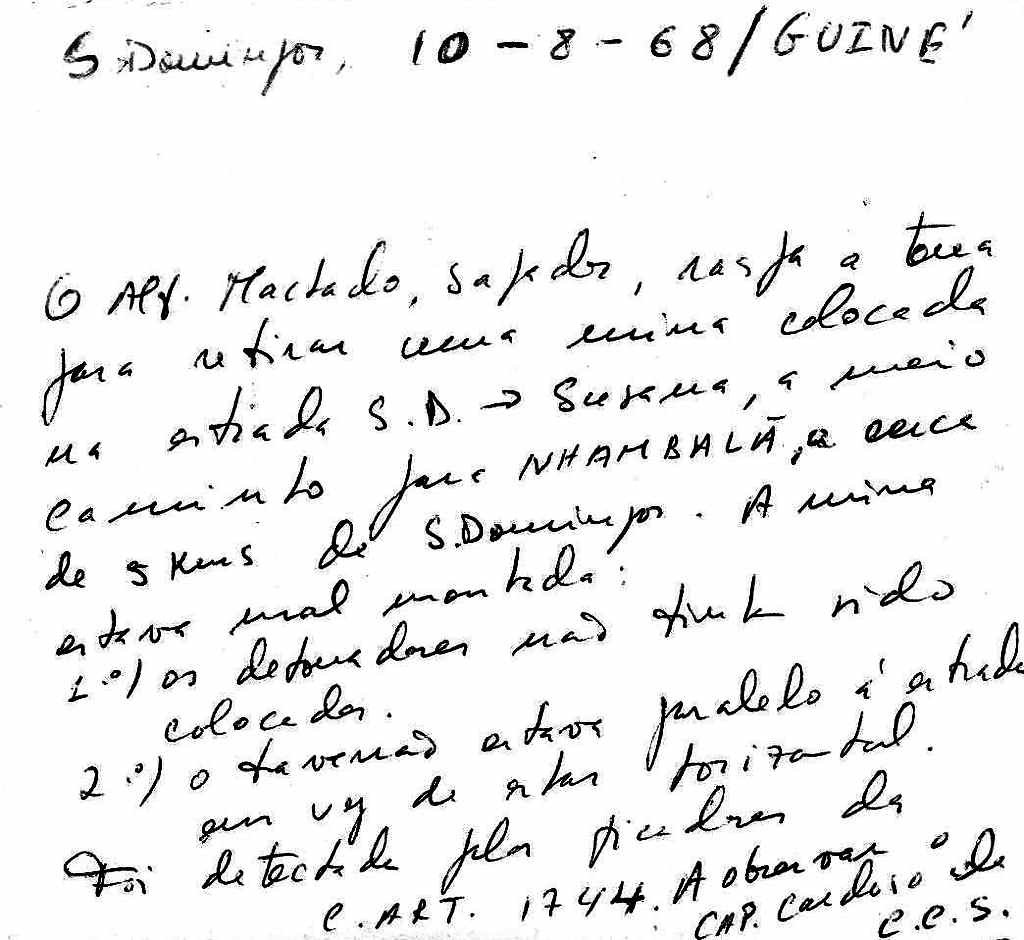 S. Domingos, 10-8-68/GUINÉ
O Alf. Machado, sapador, raspa a terra
para retirar uma mina colocada
na estrada S.D. → Susana, a meio
caminho para NHAMBALÃ, a cerca
de 5 Kms de S.Domingos. A mina
estava mal montada:
1.º) os detonadores não tinh sido
colocados.
2.º) o travessão estava paralelo á estrada
em vez de estar horizontal.
Foi detectada pelos picadores da
C. ART. 1744. A observar o
CAP. Cardoso da
C.C.S.